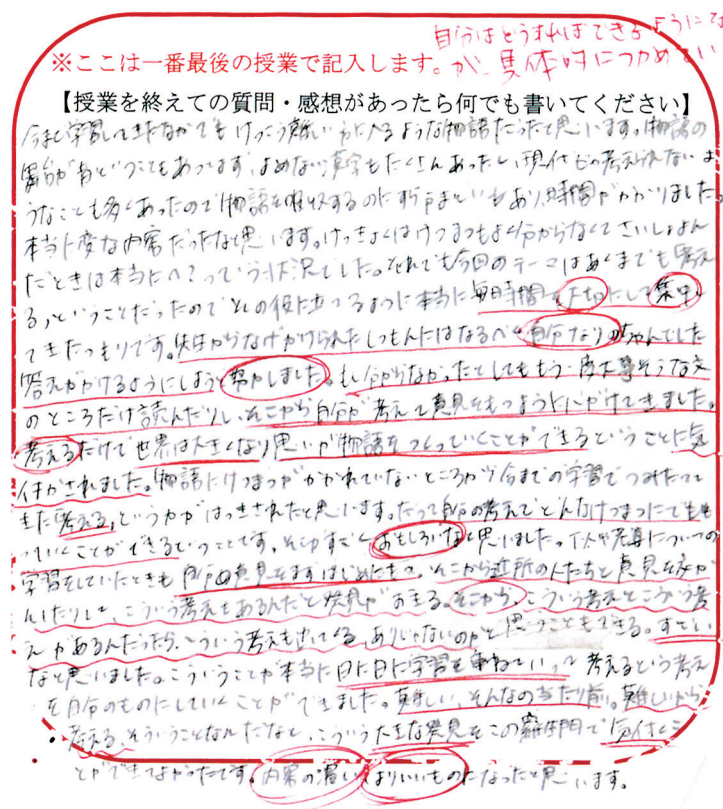 自分はどうすればできるようにな
が、具体的につかめてい
※ここは一番最後の授業で記入します。
【授業を終えての質問・感想があったら何でも書いてください】
今まで学習してきたなかでもけっこう難しい方に入るような物語だったと思います。物語の
舞台が昔ということもあってます、よめない漢字もたくさんあったし、現代じゃ考えられないよ
うなことも多くあったので物語を吸収するのにすら戸まどいもあり、時間がかかりました。
本当に変な内容だったなと思います。けっきょくはけつまつもよく分からなくてさいしょよん
だときは本当にへ?っていう状況でした。それでも今回のテーマはあくまでも「考え
る」ということだったのでその役に立つるように本当に毎日時間を大切にして集中し
てきたつもりです。先生からなげかけられたしつもんにはなるべく自分なりのちゃんとした
答えがかけるようにしようと努力しました。もし分からなかったとしてももう一度大事そうな文
のところだけ読んだりし、そこから自分が考えて意見をもつように心がけてきました。
考えるだけで世界は大きくなり思いが物語をつくっていくことができるということに気
付かされました。物語にけつまつがかかれていないところが今までの学習でつみたてて
きた「考える」という力がはっきされたと思います。だって自分の考えでどんなけつまつにでもも
っていくことができるということです。そこがすごくおもしろいなと思いました。下人や老婆についての
学習をしていたときも自分の意見をまずはじめにもつ。そこから近所の人たちと意見を交か
んしたりして、こういう考えもあるんだと発見がおきる。そこから、こういう考えとこういう考
えがあるんだったら、こういう考えもきっとある、ありじゃないのかと思うこともできる。すごい
なと思いました。こういうことが本当に日に日に学習を重ねていって考えるという考え
を自分のものにしていくことができました。難しい、そんなの当たり前。難しいから
考える、そういうことなんだなと、こういう大きな発見をこの羅生門で気付くこ
とができてよかったです。内容の濃いよりいいものになったと思います。